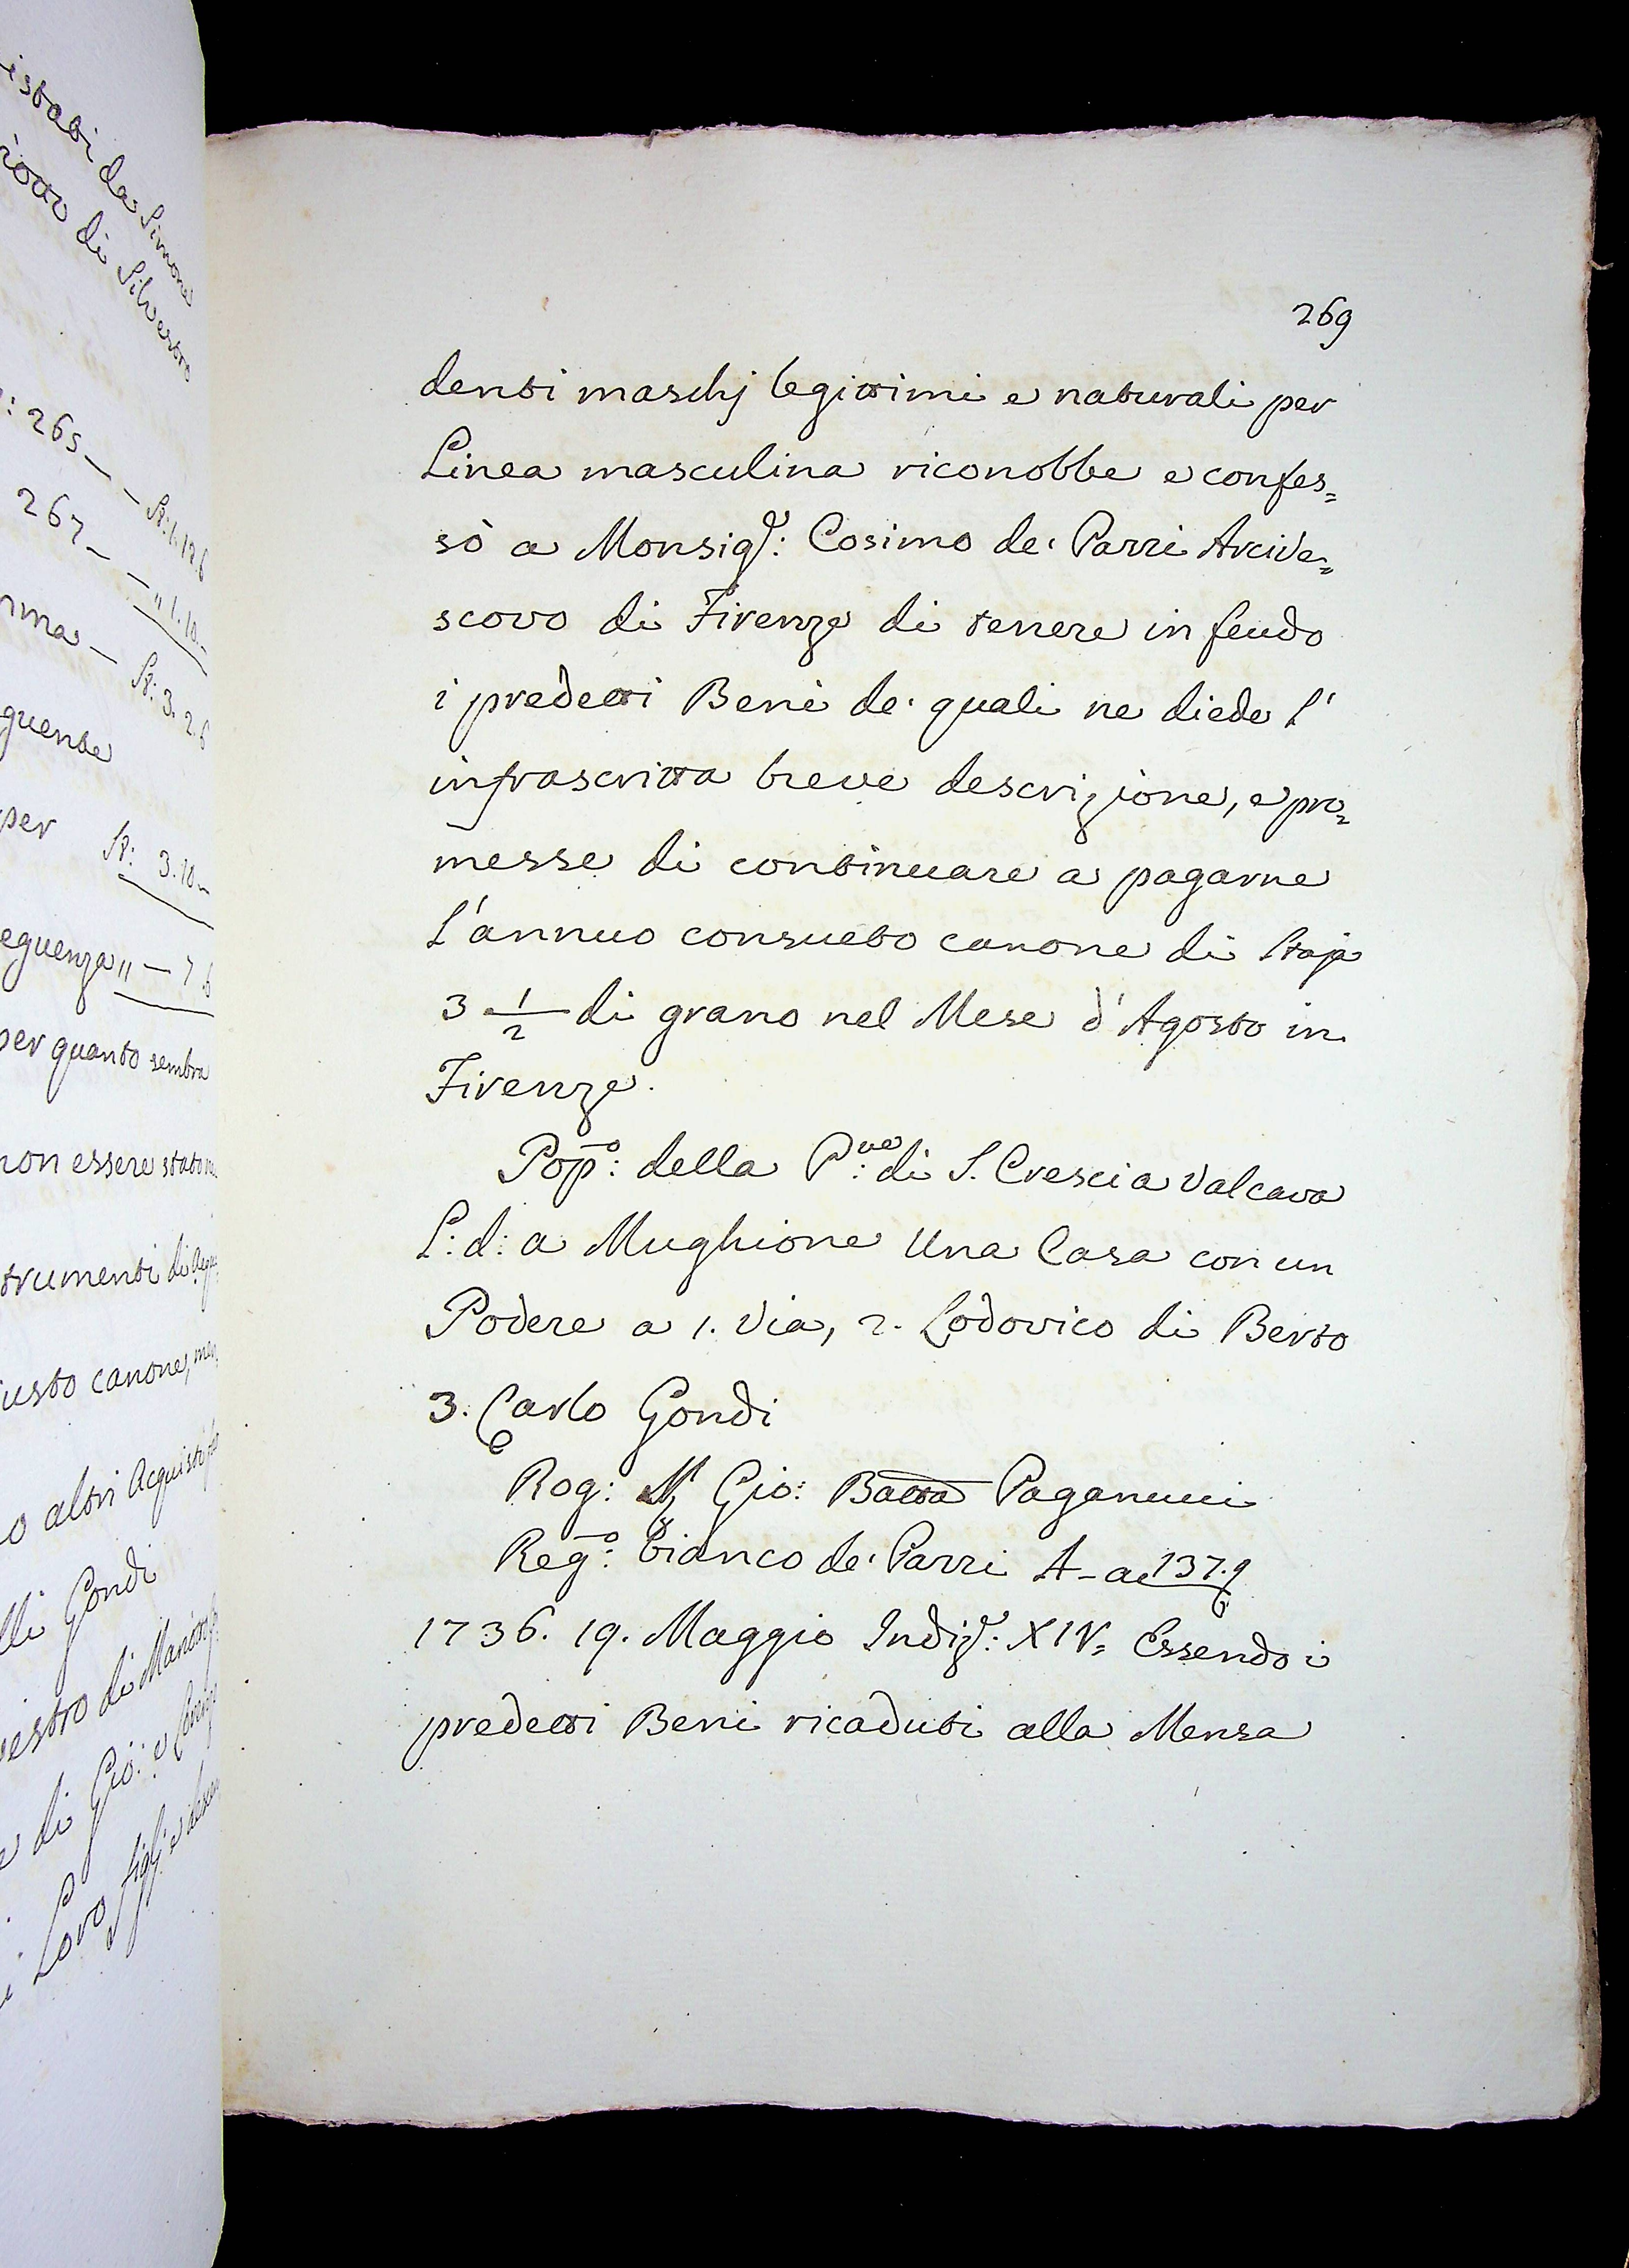 269
denti maschj legittimi e naturali per
Linea masculina riconobbe e confes=
sò a Monsig.r: Cosimo de' Pazzi Arcive=
scovo di Firenze di tenere in feudo
i predetti Beni de' quali ne diede l'
infrascritta breve descrizione, e pro=
messe di continuare a pagarne
l'annuo consueto canone di Staja
3 1/2 di grano nel Mese d'Agosto in
Firenze.
Pop.o: della P.ve: di S. Cresci a Valcava
L: d: a Mughione Una Casa con un
Podere a 1. Via, 2. Lodovico di Berto
3. Carlo Gondi
Rog: Gio: Batta Paganucci
Reg.o: bianco de' Pazzi A - ac 137. 9
1736. 19. Maggio Indiz.e: XIV= Essendo i
predetti Beni ricaduti alla Mensa
istati da Simone
di Silvestro
: 265 — —
267 — — " 1. 10 -
mma — St: 3. 2. 6
guente
per St: 3. 10 -
eguenza " — 7. 6
per quanto sembra
non essere stato
trumenti di
usto canone,
o altri Acquisti
lli Gondi
vestro di
di Gio: e
Loro figli e